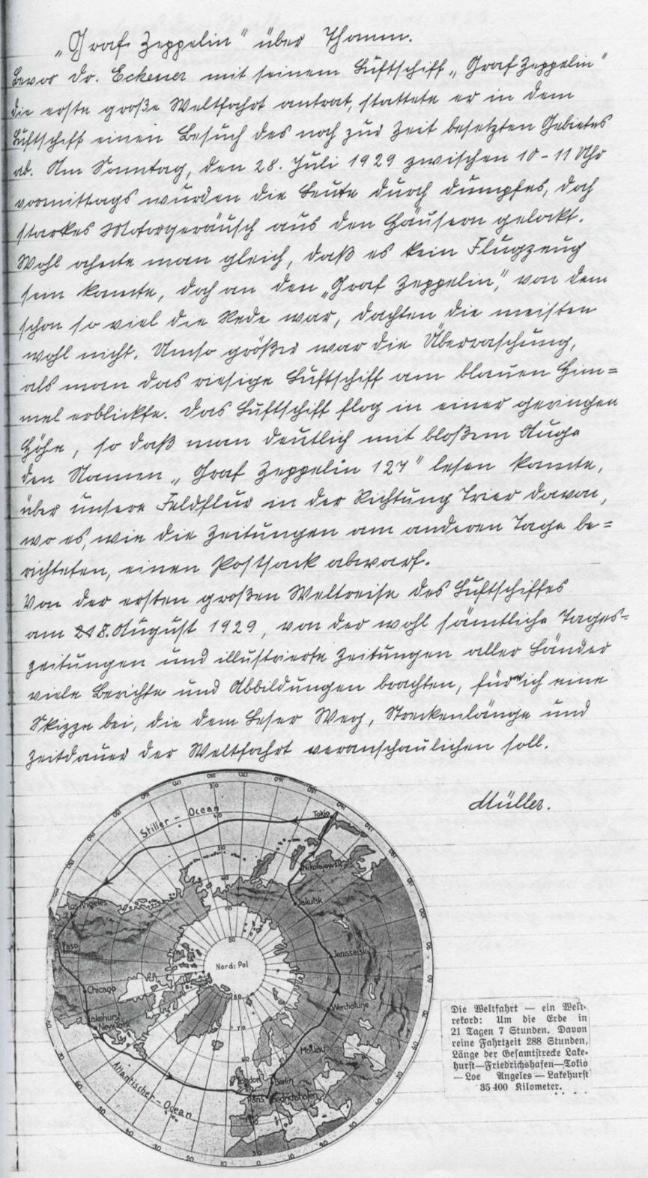 „Graf Zeppelin“ über Thomm.
Bevor Dr. Eckener mit seinem Luftschiff „Graf Zeppelin“
die erste große Weltfahrt antrat, stattete er in dem
Luftschiff einen Besuch des noch zur Zeit besetzten Gebietes
ab. Am Sonntag, den 28. Juli 1929 zwischen 10-11 Uhr
vormittags wurden die Leute durch dumpfes, doch
starkes Motorgeräusch aus den Häusern gelockt.
Wohl ahnte man gleich, daß es kein Flugzeug
sein konnte, doch an den „Graf Zeppelin“, von dem
schon so viel die Rede war, dachten die meisten
wohl nicht. Umso größer war die Überraschung,
als man das riesige Luftschiff am blauen Him=
mel erblickte. Das Luftschiff flog in einer geringen
Höhe, so daß man deutlich mit bloßem Auge
den Namen „Graf Zeppelin 127“ lesen konnte,
über unsere Feldflur in der Richtung Trier davon,
wo es, wie die Zeitungen am anderen Tage be=
richteten, einen Postsack abwarf.
Von der ersten großen Weltreise des Luftschiffes
am 8. August 1929, von der wohl sämtliche Tages=
zeitungen und illustrierte Zeitungen aller Länder
viele Berichte und Abbildungen brachten, füge ich eine
Skizze bei, die dem Leser Weg, Streckenlänge und
Zeitdauer der Weltfahrt veranschaulichen soll.
Müller.
Stiller - Ocean
Tokio
Nikolajewsk
Jakutsk
Los Angeles
El Paso
Nord-Pol
Jenisseisk
Chicago
Werchoturje
Lakehurst
New York
Moskau
Atlantischer - Ocean
London
Berlin
Paris
Friedrichshafen
Die Weltfahrt — ein Welt-
rekord: Um die Erde in
21 Tagen 7 Stunden. Davon
reine Fahrtzeit 288 Stunden,
Länge der Gesamtstrecke Lake-
hurst—Friedrichshafen—Tokio
—Loe Angeles—Lakehurst
35 400 Kilometer.